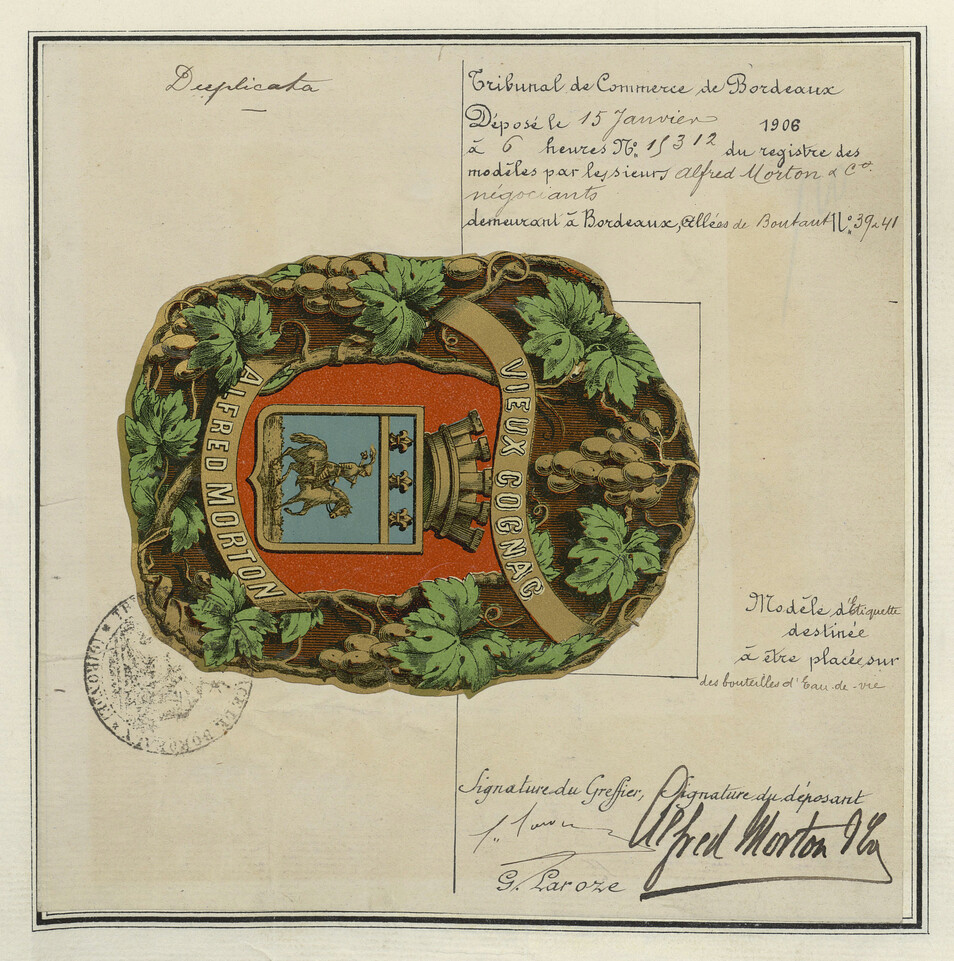 Duplicata
Tribunal de Commerce de Bordeaux
Déposé le 15 Janvier 1906
à 6 heures No. 15312 du registre des
modèles par les sieurs Alfred Morton & Cie.
négociants
demeurant à Bordeaux, allées de Boutaut No. 39 à 41
ALFRED MORTON
VIEUX COGNAC
Modèle d'Etiquette
destinée
à être placée sur
des bouteilles d'Eau-de-vie
BORDEAUX
Signature du Greffier, Signature du déposant
Alfred Morton & Co
G. Laroze